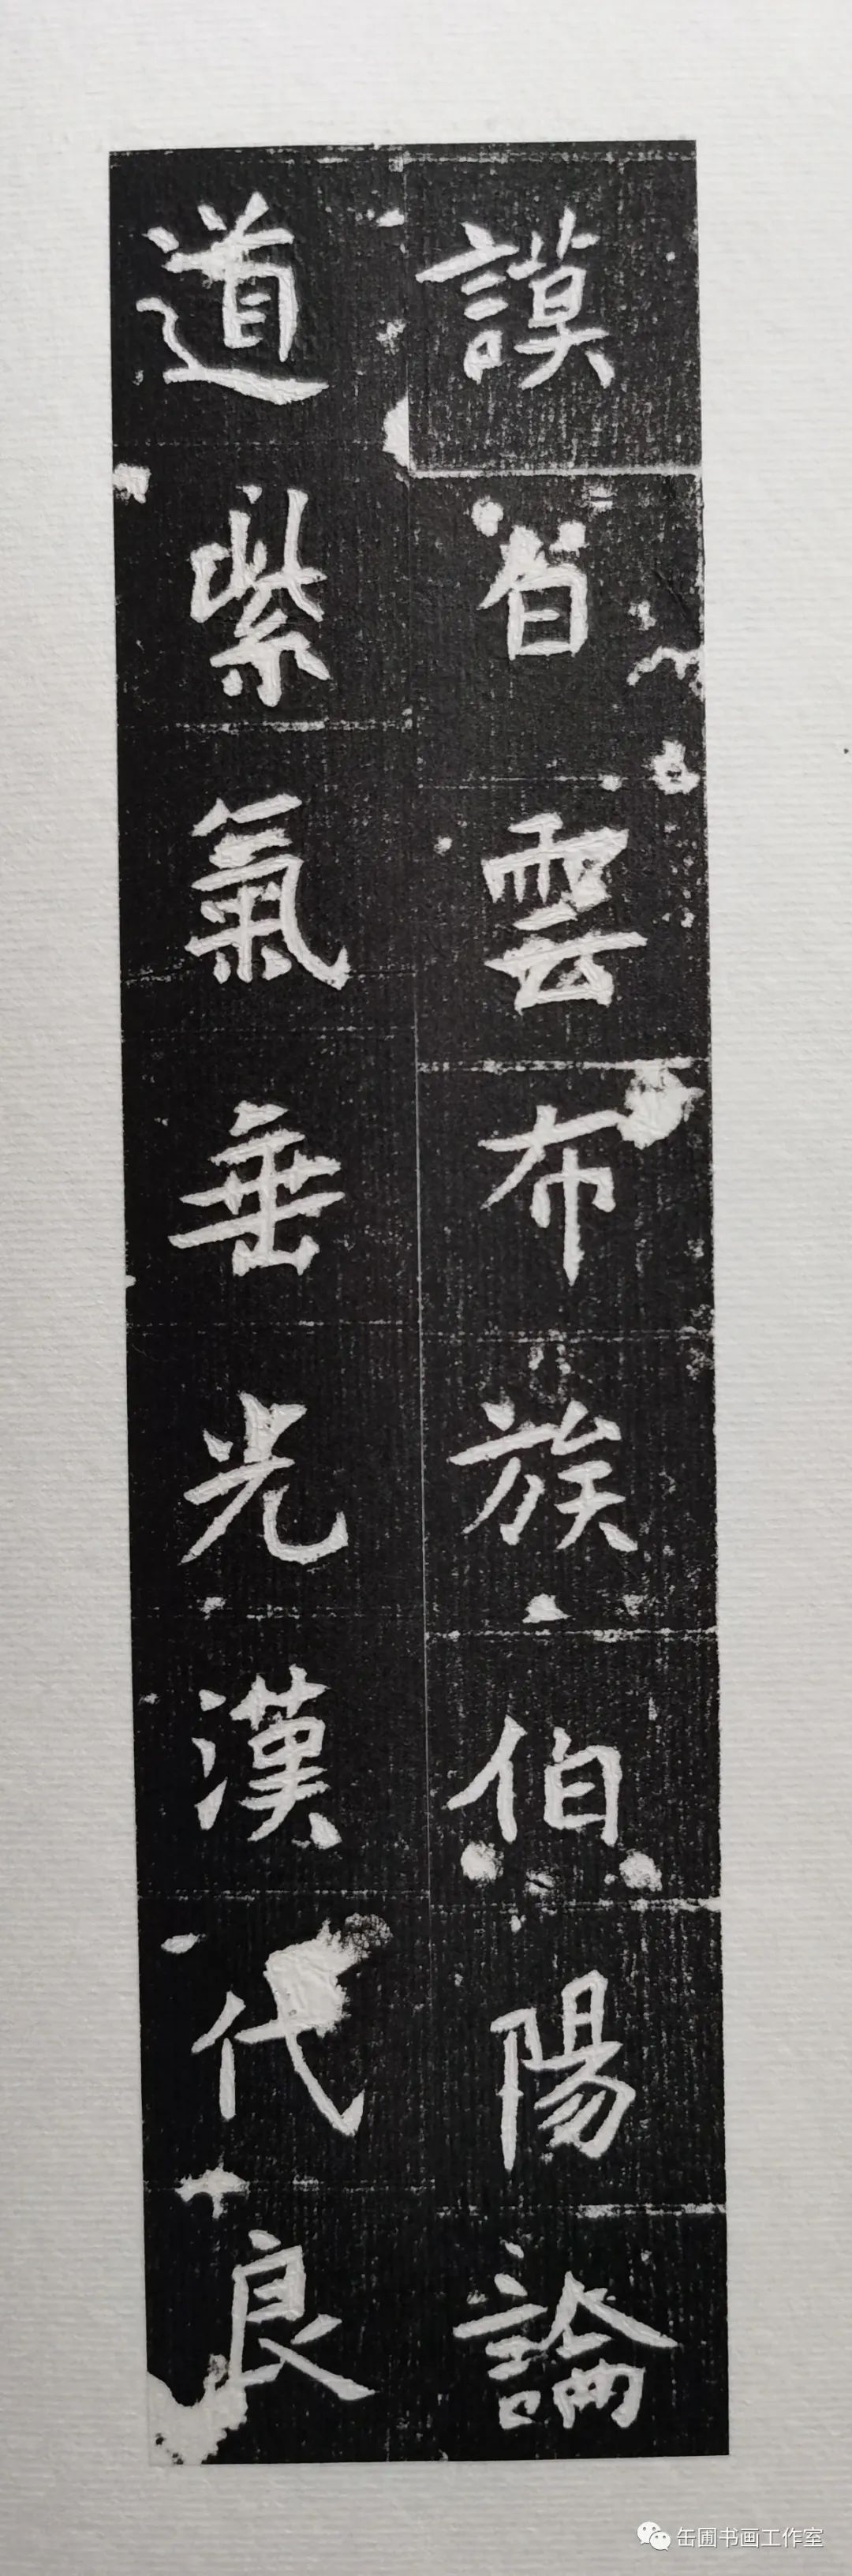 謨白雲布族伯陽論
道紫氣垂光漢代良
缶圃书画工作室